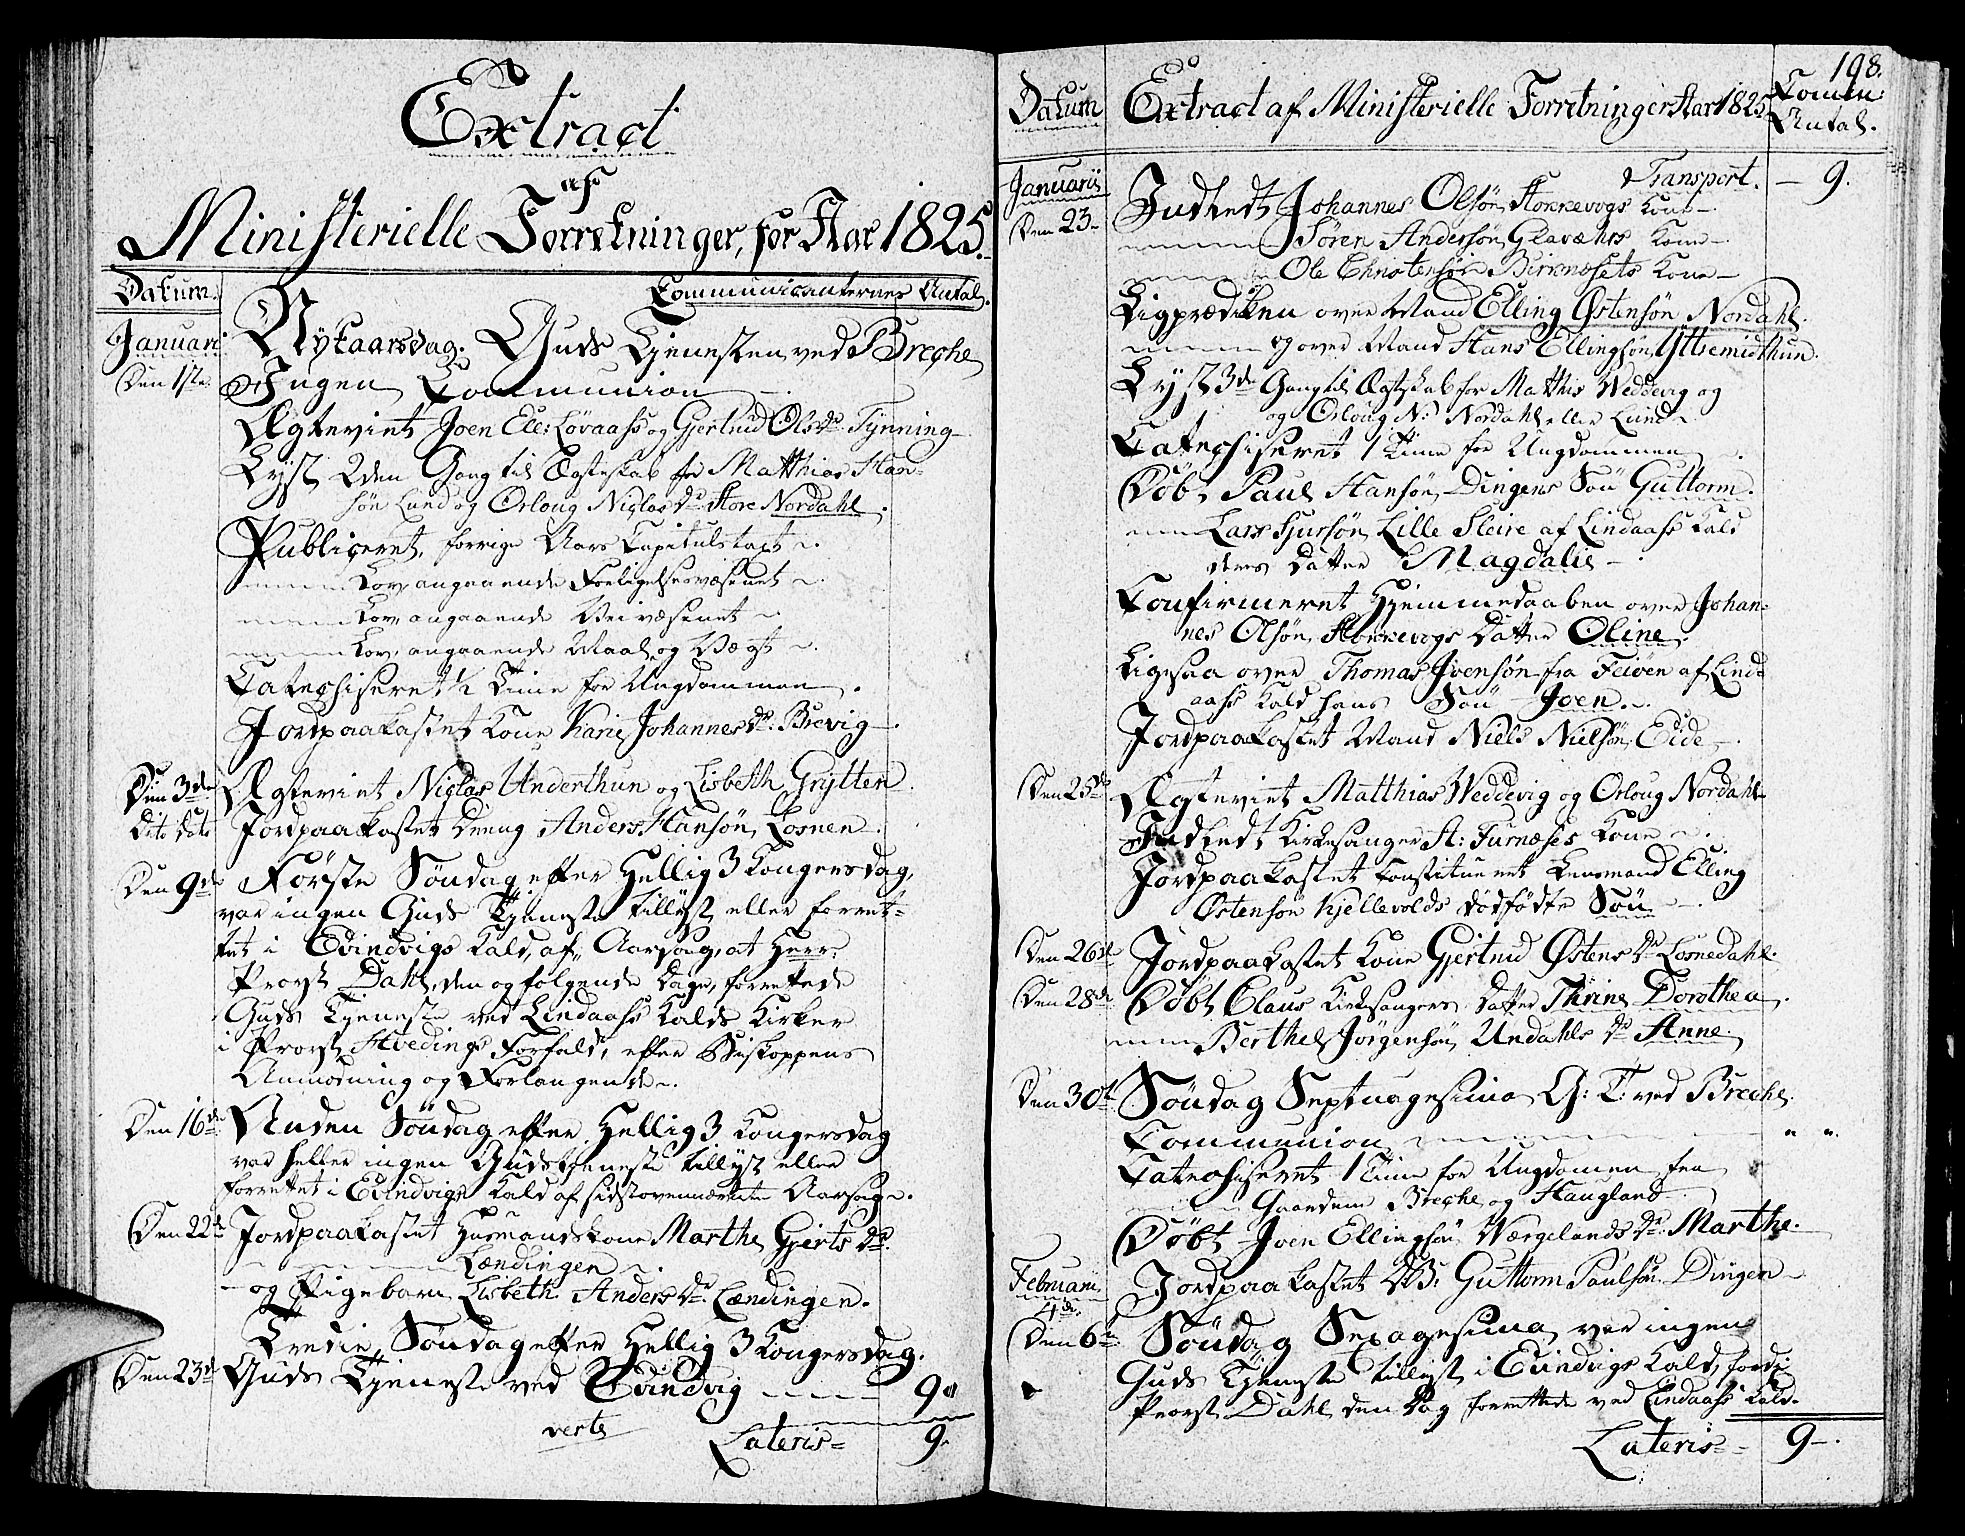 Extract
af
Ministerielle Forretninger, for Aar 1825.
Datum. Communicanternes Antal.
Januari Nytaarsdag. Guds Tjenesten ved Breche
Den 1ste Ingen Communion
Ægteviet Joen Ell: Løvaass og Gjertrud Olsdr. Tynning
Lyst 2den Gang til Ægteskab for Matthias Han-
søn Lund og Orloug Niglasdr. Store Nordahl.
Publiceret, forrige Aars Capitulstaxt
Lov, angaaende Forligelsesvæsenet
Lov, angaaende Veivæsenet
Lov, angaaende Maal og Vægt
Catechiseret ½ Time for Ungdommen.
Jordpaakastet Kone Kari Johannesdr: Brevig
Den 3de Ægteviet Niglas Underthun og Lisbeth Grytten.
Dito Dito Jordpaakastet Dreng Anders Hansøn, Losnen.
Den 9de Første Søndag efter Hellig 3 Kongersdag,
var ingen Guds Tjeneste tillyst eller forret-
tet i Evindvigs Kald, af Aarsag, at Herr
Provst Dahl, den og følgende Dage, forrettede
Guds Tjeneste ved Lindaass Kalds Kirker
i Provst Hvedings Forfald, efter Biskoppens
Anmodning og Forlangende.
Den 16de Anden Søndag efter Hellig 3 Kongersdag
var heller ingen Gudstjeneste tillyst eller
forrettet i Evindvigs Kald af sidstovennævnte Aarsag.
Den 22de Jordpaakastet Husmandskone Marthe Gjerts dr.
Lændingen
og Pigebarn Lisbeth Anders dr. Lændingen.
Tredie Søndag efter Hellig 3 Kongersdag.
Den 23de Guds Tjeneste ved Evindvig 9
verte Lateris 9.
198.
Datum Extract af Ministerielle Forretninger Aar 1825 Comm: Antal.
Transport. 9.
Januarii Indledt Johannes Olsøn Storrevogs Kone
Den 23 Søren Andersøn Glavæhrs Kone
Ole Christensøn Birknesets Kone
Ligprædiken over Mand Elling Østensøn Nordahl.
og over Mand Hans Ellingsøn Yttremidthun.
Lyst 3de Gang til Ægteskab for Matthis Weddevig og
og Orloug N: Nordahl eller Lund
Catechiseret 1 Time for Ungdommen.
Døbt Paul Hansøn, Dingens Søn Guttorm.
Lars Sjursøn, Lille Sleire af Lindaass Kald
deres Datter Magdalis
Confirmeret Hjemmedaaben over Johan-
nes Olsøn Storrevogs Datter Oline.
Ligesaa over Thomas Joensøn fra Feiven af Lind-
aass Kald hans Søn Joen.
Jordpaakastet Mand Niels Nielsøn Eide
Den 25de Ægteviet Matthias Weddevig og Orloug Nordahl
Indledt Kirkesanger A: Furnæses Kone
Jordpaakastet Constitueret Lensmand Elling
Østensøn Kjellevolds dødfødte Søn
Den 26de Jordpaakastet Kone Gjertrud Østens dr Losnedahl.
Den 28de Døbt Claus Kirkesangers Datter Thrine Dorothea.
Berthel Jørgensøn Undahls dr Anne.
Den 30te Søndag Septuagesima G: T: ved Breche.
Communion " "
Catechiseret 1 Time for Ungdomen fra
Gaardene Breche og Haugland
Døbt Joen Ellingsøn Wærgelands dr. Marthe.
Februarii Jordpaakastet Guttorm Paulsøn Dingen
4de
Den 6te Søndag Sexagesima var ingen
Guds Tjeneste tillyst i Evindvigs Kald, fordi
Provst Dahl den Dag forrettede ved Lindaass Kald.
Lateris 9.